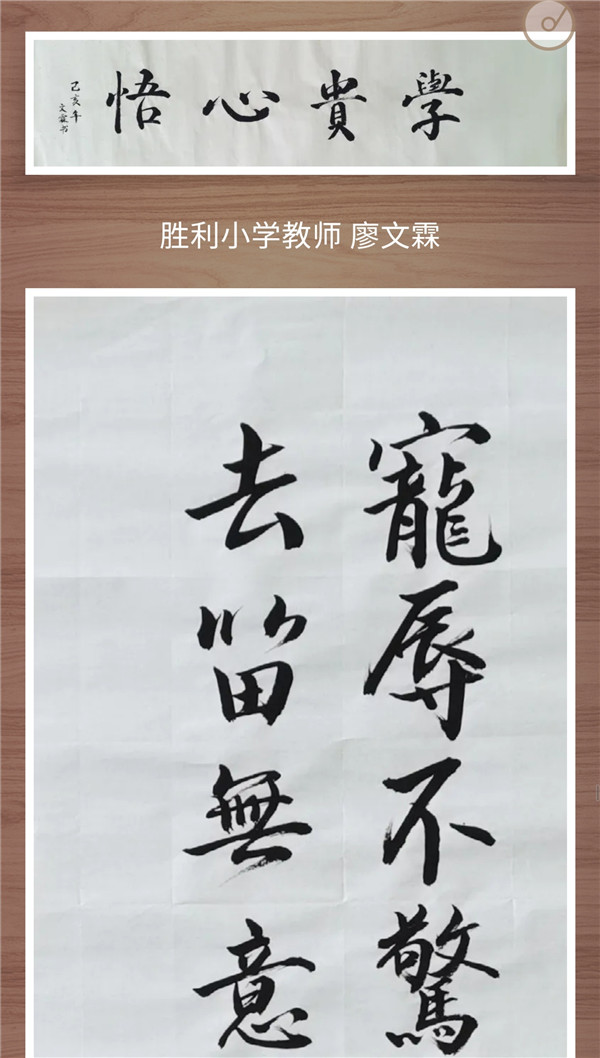 學貴心悟
己亥年
文霖书
胜利小学教师 廖文霖
寵辱不驚
去留無意